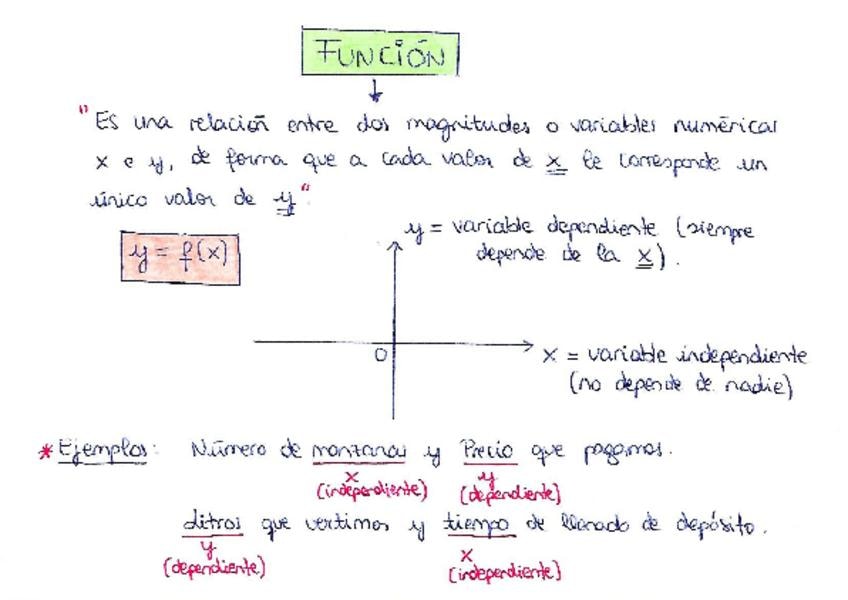 FUNCIÓN
"Es una relación entre dos magnitudes o variables numéricas
x e y, de forma que a cada valor de x le corresponde un
único valor de y"
y = variable dependiente (siempre
depende de la x).
y = f(x)
0
x = variable independiente
(no depende de nadie)
* Ejemplos: Número de manzanas y Precio que pagamos.
x y
(independiente) (dependiente)
Litros que vertimos y tiempo de llenado de depósito.
y x
(dependiente) (independiente)